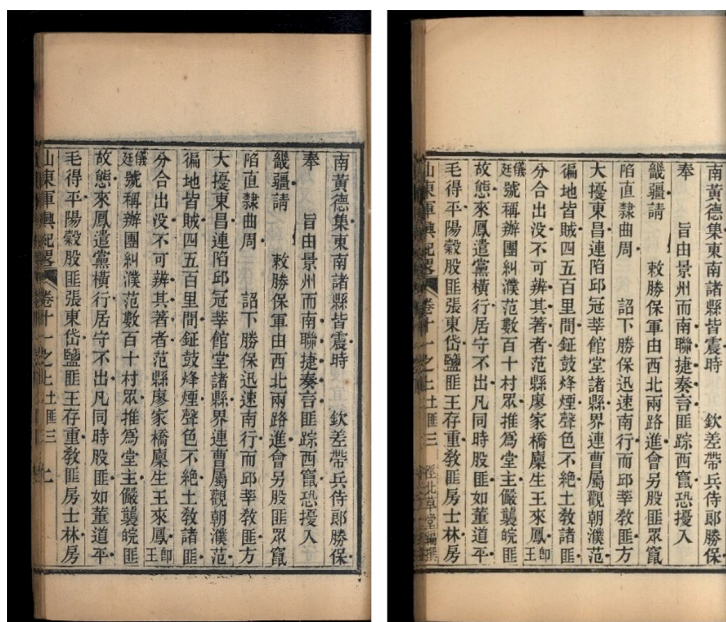 南黃德集東南諸縣皆震時　　欽差帶兵侍郎勝保
奉　　旨由景州而南聯捷奏言匪踪西竄恐擾入
畿疆請　　敕勝保軍由西北兩路進會另股匪眾竄
陷直隸曲周　　詔下勝保迅速南行而邱莘敎匪方
大擾東昌連陷邱冠莘館堂諸縣界連曹屬觀朝濮范
徧地皆賊四五百里間鉦鼓烽煙聲色不絕土敎諸匪
分合出没不可辨其著者范縣廖家橋廩生王來鳳卽王
儀廷號稱辦團糾濮范數百十村眾推爲堂主嚴襲皖匪
故態來鳳遣黨橫行居守不出凡同時股匪如董道平
毛得平陽穀股匪張東岱鹽匪王存重敎匪房士林房
山東軍興紀畧　卷十一之上土匪三　七
南黃德集東南諸縣皆震時　　欽差帶兵侍郎勝保
奉　　旨由景州而南聯捷奏言匪踪西竄恐擾入
畿疆請　　敕勝保軍由西北兩路進會另股匪眾竄
陷直隸曲周　　詔下勝保迅速南行而邱莘敎匪方
大擾東昌連陷邱冠莘館堂諸縣界連曹屬觀朝濮范
徧地皆賊四五百里間鉦鼓烽煙聲色不絕土敎諸匪
分合出没不可辨其著者范縣廖家橋廩生王來鳳卽王
儀廷號稱辦團糾濮范數百十村眾推爲堂主嚴襲皖匪
故態來鳳遣黨橫行居守不出凡同時股匪如董道平
毛得平陽穀股匪張東岱鹽匪王存重敎匪房士林房
山東軍興紀畧　卷十一之上土匪三